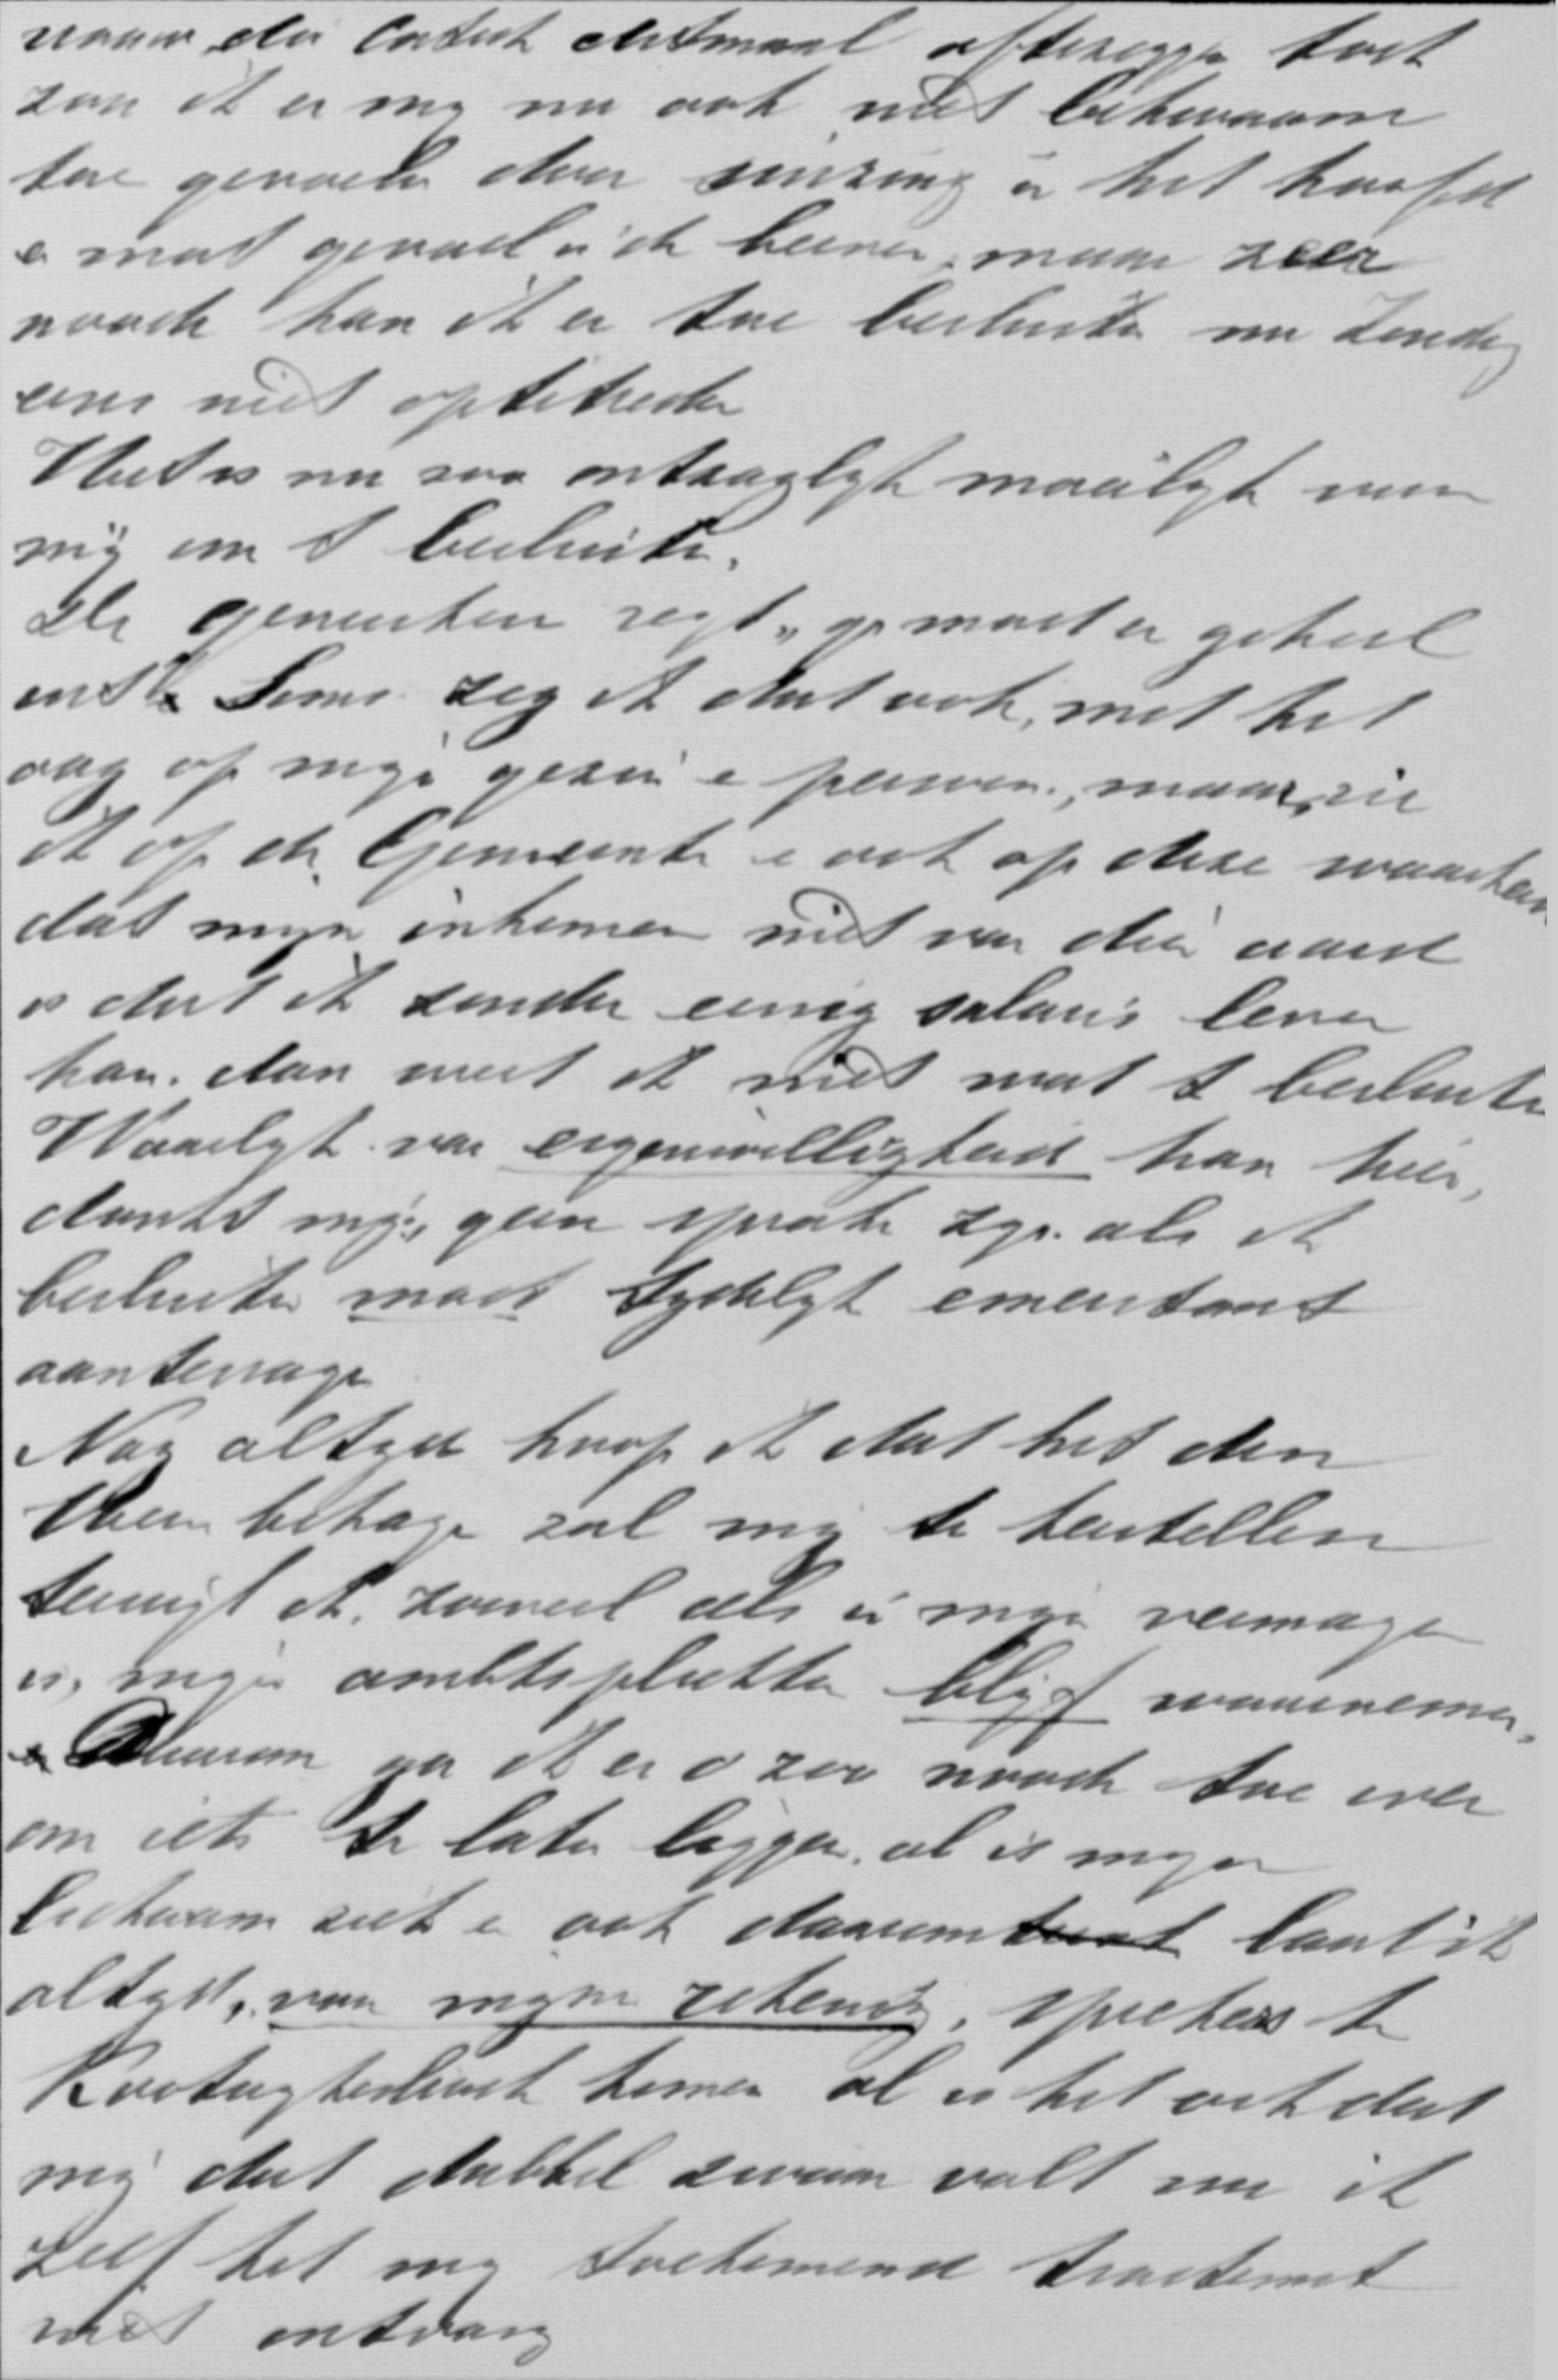 maar die laatste ditmaal aftezeggen toch
zou ik er mij nu ook niet bekwaam
toe gevoelen door suizing in het hoofd
en mat gevoel in de beenen, maar zeer
noode kan ik er toe besluiten nu Zondag
eens niet optetreden
Het is nu zoo ontzaglijk moeilijk voor
mij om te besluiten.
De gemeente zegt „ge moet er geheel
uit". Soms zeg ik dat ook, met het
oog op mijn gezin en persoon, maar, zie
ik op de Gemeente en ook op deze waarheid
dat mijn inkomen niet van dien aard
is dat ik zonder eenig salaris leven
kan. dan weet ik niet wat te besluiten
Waarlijk van eigenwilligheid kan hier,
dunkt mij, geen sprake zijn. als ik
besluiten moet tijdelijk emeritaat
aantevragen
Nog altijd hoop ik dat het den
Heer behagen zal mij te herstellen
terwijl ik, zooveel als in mijn vermogen
is, mijn ambtsplichten blijf waarnemen,
en daarom ga ik er o zoo noode toe over
om iets te laten liggen, al is mijn
lichaam ziek en ook daarom laat ik
altijd, voor mijne rekening, sprekers te
Kootwijkerbroek komen al is het ook dat
mij dat dubbel zwaar valt nu ik
zelf het mij toekomend tractement
niet ontvang